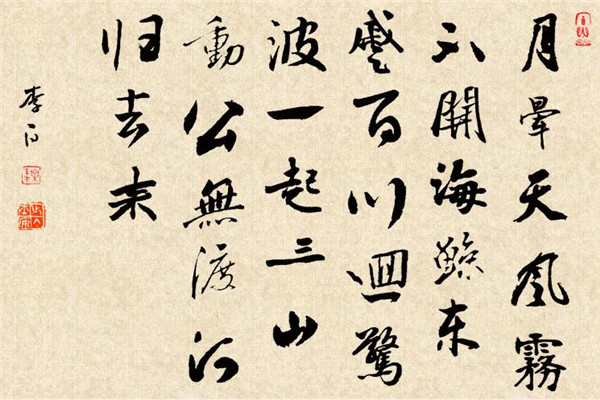 月暈天風霧
不開海鯨东
蹙百川迴驚
波一起三山
動公無渡河
归去来
李白